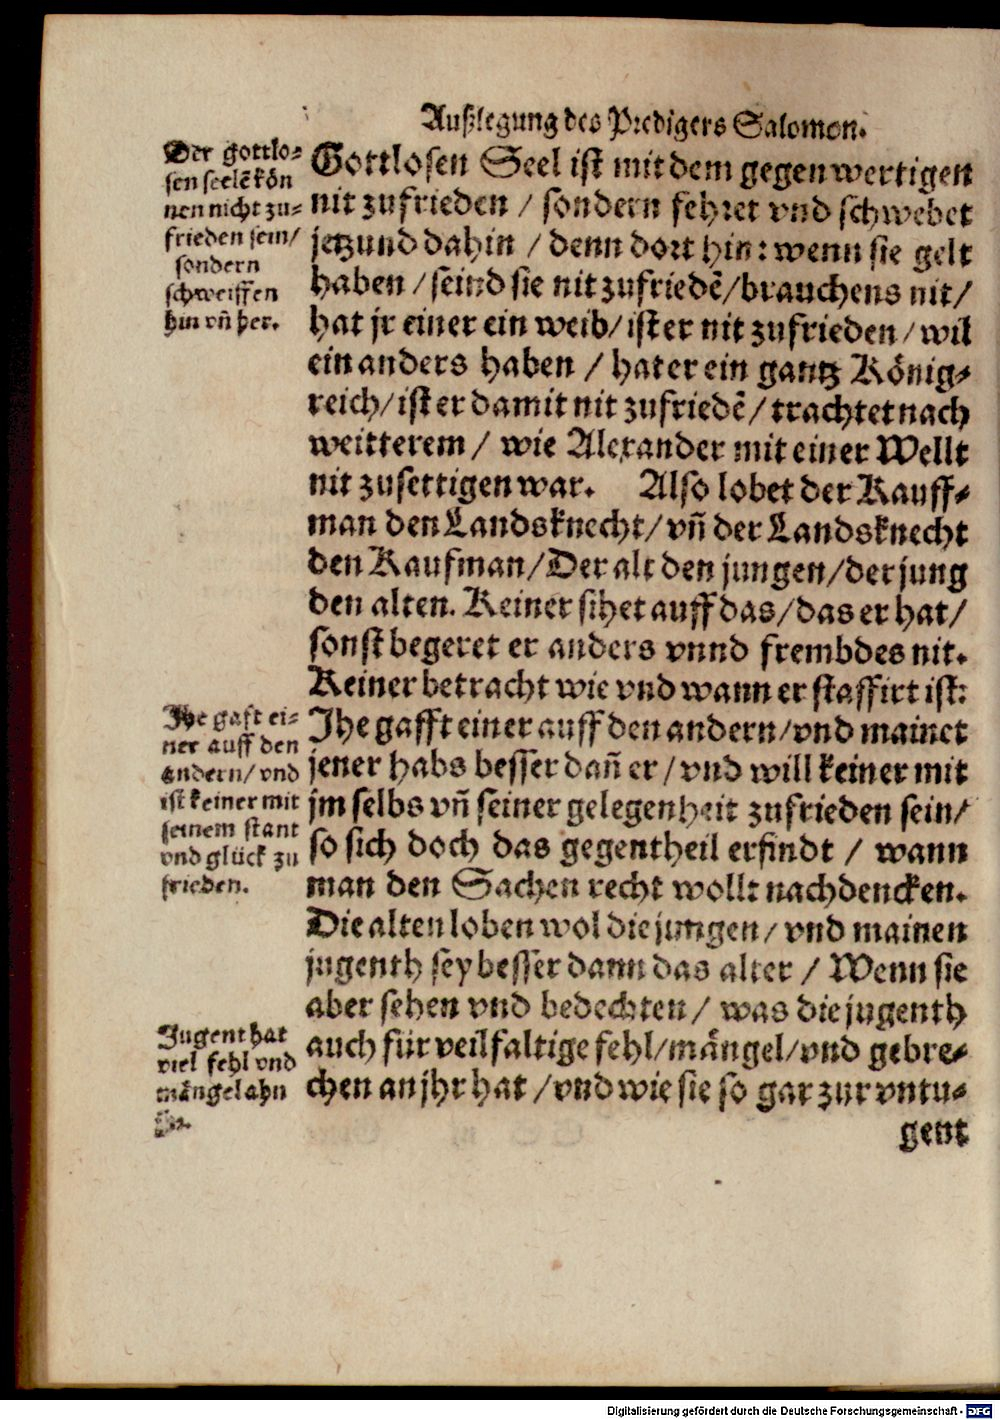 Außlegung des Predigers Salomon.
Der gottlo⸗
sen seelẽ kön
nen nicht zu⸗
frieden sein/
sondern
schweiffen
hin vñ her.
Gottlosen Seel ist mit dem gegenwertigen
nit zufrieden / sondern fehret vnd schwebet
jetzund dahin / denn dort hin: wenn sie gelt
haben / seind sie nit zufriedẽ/brauchens nit/
hat jr einer ein weib/ist er nit zufrieden/wil
ein anders haben / hat er ein gantz König⸗
reich/ist er damit nit zufriedẽ/trachtet nach
weitterem / wie Alexander mit einer Wellt
nit zusettigen war. Also lobet der Kauff⸗
man den Landsknecht/vñ der Landsknecht
den Kaufman/Der alt den jungen/der jung
den alten. Keiner sihet auff das/das er hat/
sonst begeret er anders vnnd frembdes nit.
Keiner betracht wie vnd wann er staffirt ist:
Jhe gafft einer auff den andern/vnd mainet
jener habs besser dañ er/vnd will keiner mit
jm selbs vñ seiner gelegenheit zufrieden sein/
so sich doch das gegentheil erfindt / wann
man den Sachen recht wollt nachdencken.
Die alten loben wol die jungen/vnd mainen
jugenth sey besser dann das alter / Wenn sie
aber sehen vnd bedechten/ was die jugenth
auch für veilfaltige fehl/mängel/vnd gebre⸗
chen an jhr hat /vnd wie sie so gar zur vntu⸗
gent
Jhe gaft ei⸗
ner auff den
andern/vnd
ist keiner mit
seinem stant
vnd glück zu
frieden.
Jugent hat
viel fehl vnd
mängel ahn
Digitalisierung gefördert durch die Deutsche Forschungsgemeinschaft - DFG